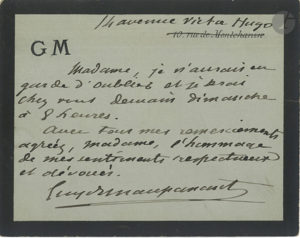 14 avenue Victor Hugo
10, rue de Montchanin
GM
Madame, je n'aurais eu
garde d'oublier et je serai
chez vous demain dimanche
à 8 heures.
Avec tous mes remerciements
agréez, madame, l'hommage
de mes sentiments respectueux
et dévoués.
Guy de Maupassant